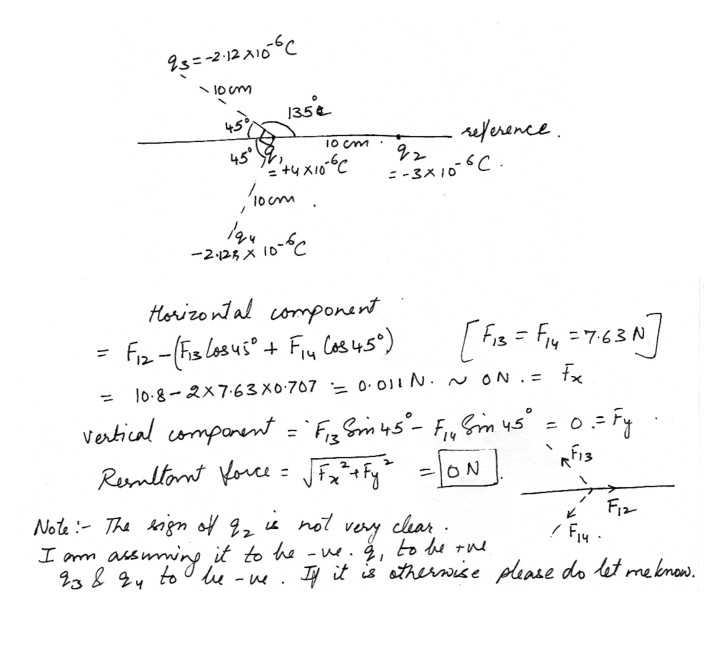 q3 = -2.12 x10⁻⁶C
10 cm
135°
45°
reference.
10 cm
45° q1
= +4 x10⁻⁶C
q2
= -3 x 10⁻⁶C.
10cm
q4
x 10⁻⁶C
Horizontal component
= F12 - (F13 Cos45° + F14 Cos45°) [F13 = F14 = 7.63 N]
= 10.8 - 2x7.63x0.707 = 0.011 N. ~ 0N. = Fx
vertical component = F13 Sin 45° - F14 Sin 45° = 0 = Fy
Resultant force = √Fx² + Fy² = 0 N.
F13
F12
F14.
Note :- The sign of q2 is not very clear.
I am assuming it to be -ve. q1 to be +ve
q3 & q4 to be -ve. If it is otherwise please do let me know.